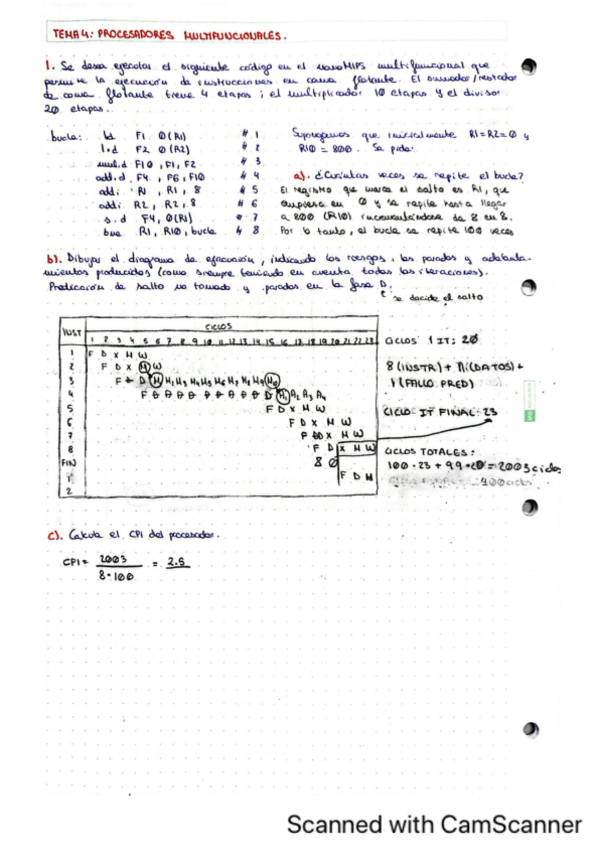 TEMA 4: PROCESADORES MULTIFUNCIONALES.
1. Se desea ejecutar el siguiente código en el nanoMIPS multifuncional que
permite la ejecución de instrucciones en coma flotante. El sumador/restador
de coma flotante tiene 4 etapas; el multiplicador 10 etapas y el divisor
20 etapas.
bucle: l.d F1 0(R1) #1
l.d F2 0(R2) #2
mul.d F10, F1, F2 #3
add.d F4, F6, F10 #4
addi R1, R1, 8 #5
addi R2, R2, 8 #6
s.d F4, 0(R1) #7
bne R1, R10, bucle #8
Supongamos que inicialmente R1=R2=0 y
R10 = 800. Se pide:
a). ¿Cuántas veces se repite el bucle?
El registro que marca el salto es R1, que
empieza en 0 y se repite hasta llegar
a 800 (R10) incrementándose de 8 en 8.
Por lo tanto, el bucle se repite 100 veces
b). Dibujar el diagrama de ejecución, indicando los riesgos, las paradas y adelanta-
mientos producidos (como siempre teniendo en cuenta todas las iteraciones).
Predicción de salto no tomado y paradas en la fase D.
se decide el salto
INST CICLOS
1 2 3 4 5 6 7 8 9 10 11 12 13 14 15 16 17 18 19 20 21 22 23
1 F D X M W
2 F D X M W
3
4
5 F D X M W
6 F D X M W
7
8 F D X M W
FIN
1
2
CICLOS 1 IT: 20
8 (INSTR) + 11 (DATOS) +
1 (FALLO PRED)
CICLO IT FINAL: 23
CICLOS TOTALES:
100·23 + 99·20 = 2003 ciclos
c). Calcula el CPI del procesador.
CPI = 2003 / 8·100 = 2.5
Scanned with CamScanner